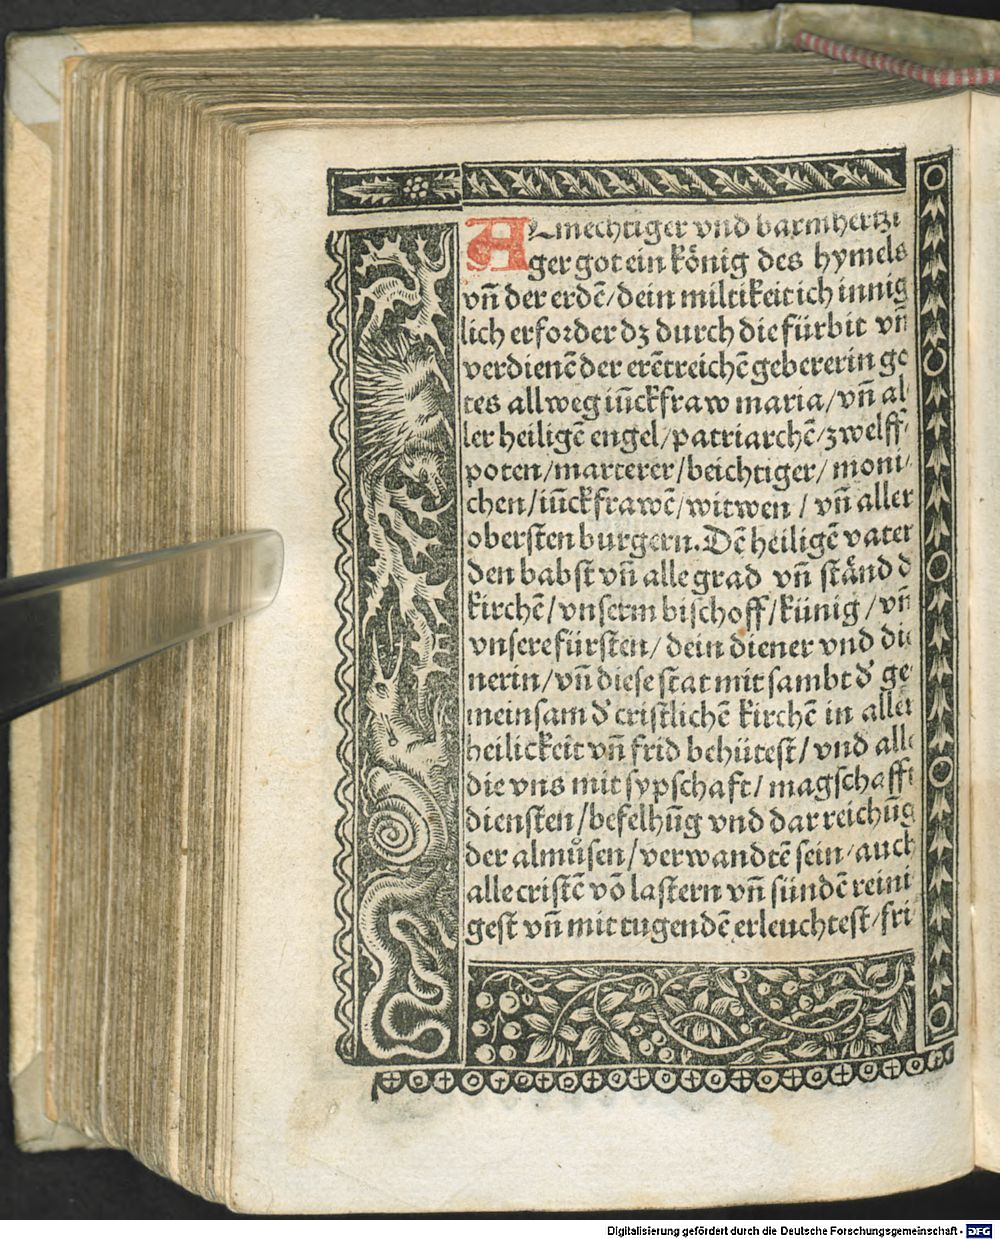 ALmechtiger vnd barmhertzi
ger got ein könig des hymels
vn̄ der erdē/dein miltikeit ich innig
lich erforder dz durch die fürbit vn̄
verdienē der erētreichē gebererin go
tes allweg iūckfraw maria/vn̄ al
ler heiligē engel/patriarchē/zwelff
poten/marterer/beichtiger/moni
chen/iūckfrawē/witwen/vn̄ aller
obersten burgern. Dē heiligē vater
den babst vn̄ alle grad vn̄ ständ d̕
kirchē/vnserm bischoff/künig/vn̄
vnsere fürsten/dein diener vnd die
nerin/vn̄ diese stat mit sambt d̕ ge
meinsam d̕ cristlichē kirchē in aller
heilickeit vn̄ frid behütest/vnd alle
die vns mit sypschaft/magschafft
diensten/befelhūg vnd dar reichūg
der almůsen/verwandtē sein/auch
alle cristē vō lastern vn̄ sündē reini
gest vn̄ mit tugendē erleuchtest/fri
Digitalisierung gefördert durch die Deutsche Forschungsgemeinschaft - DFG